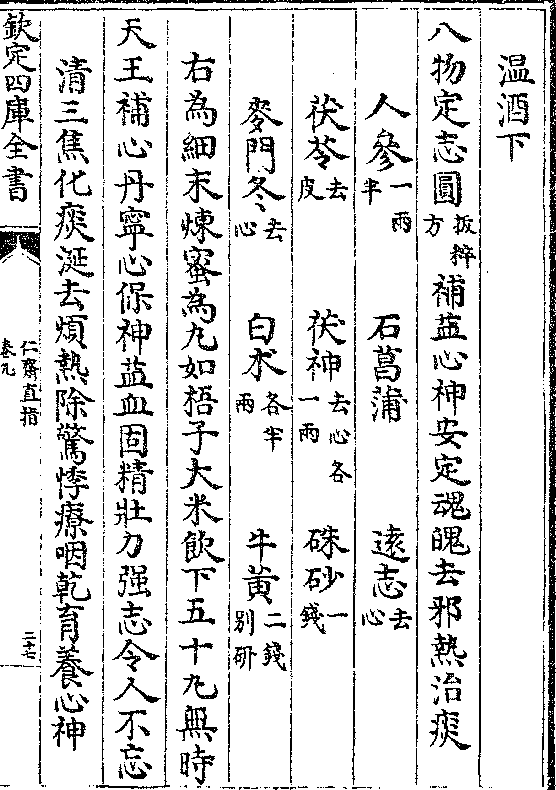 温酒下
八物定志圓拔粹方補益心神安定魂魄去邪熱治痰
人參一兩半 石菖蒲 逺志去心
茯苓去皮 茯神去心各一兩 硃砂一錢
麥門冬去心 白术各半兩 牛黃二錢别研
右為細末煉蜜為九如梧子大米飲下五十九無時
天王補心丹寧心保神益血固精壯力强志令人不忘
清三焦化痰涎去煩熱除驚悸療咽乾育養心神
欽定四庫全書
仁齋直指
卷九
三七